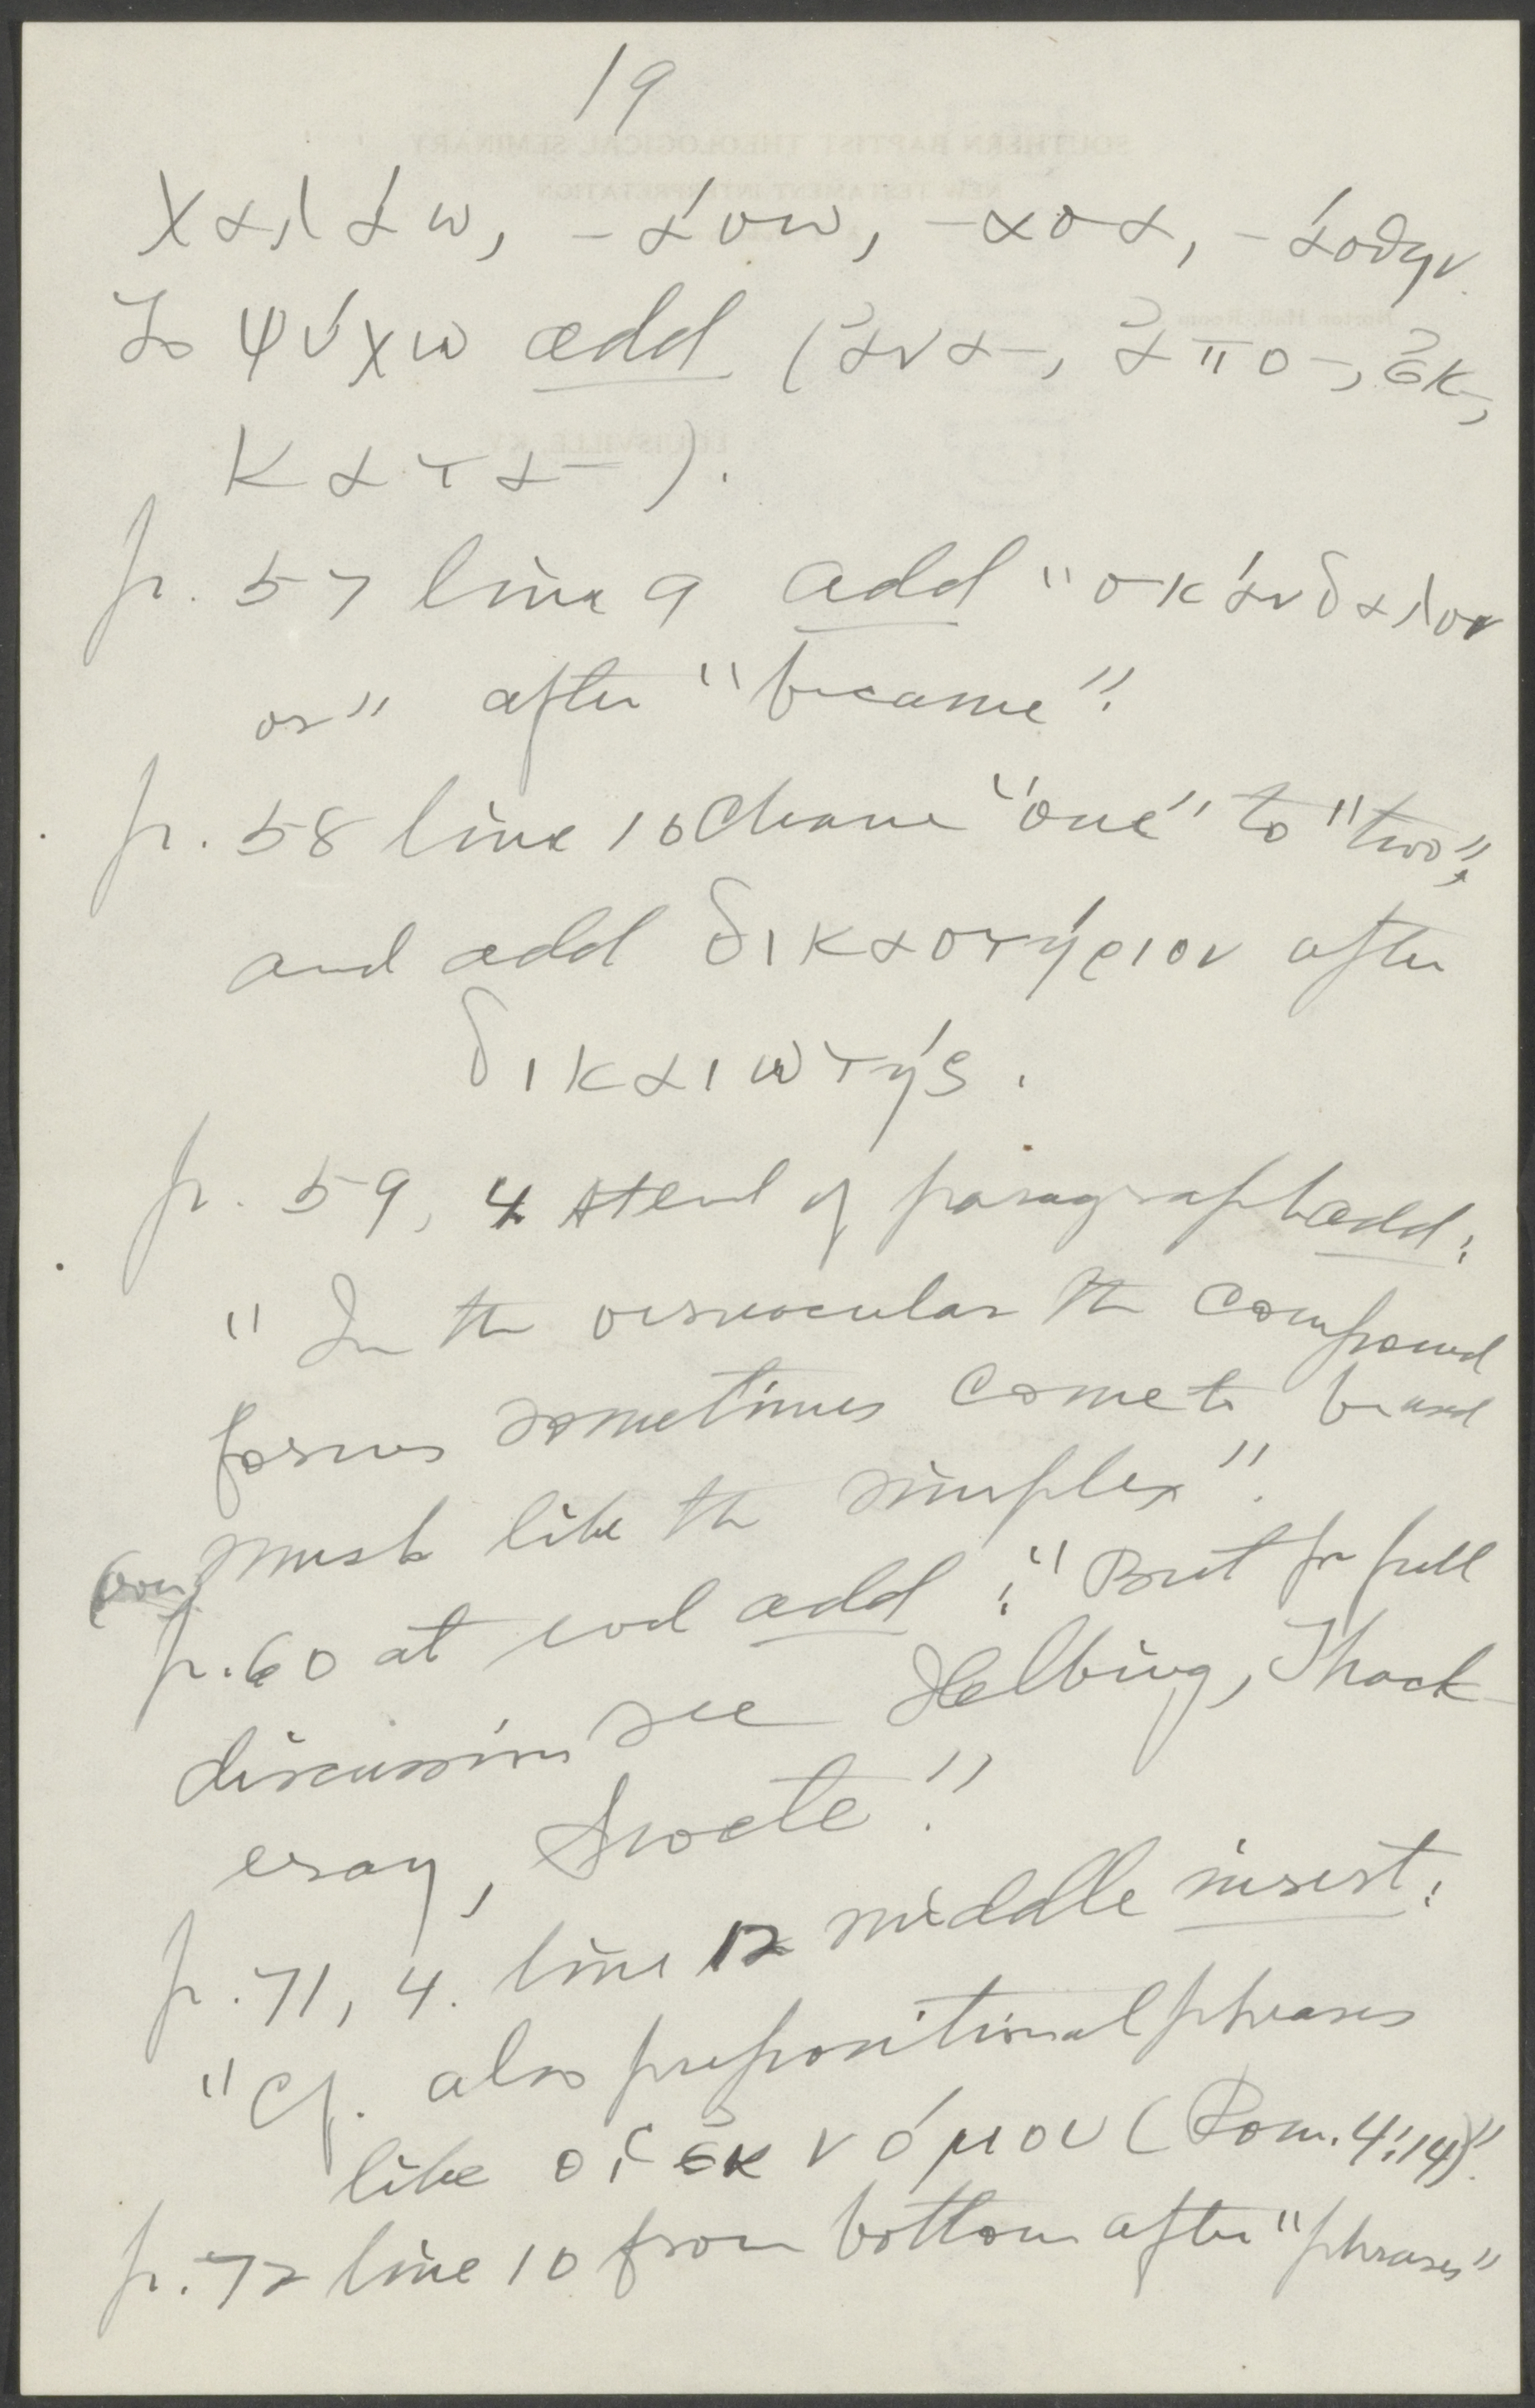 19
χαλάω, -άσω, -ασα, -άσθην.
To ψύχω add (ἀνα-, ἀπο-, ἐκ-,
κατα-).
p. 57 line 9 add "σκάνδαλον
or" after "became".
p. 58 line 10 Change "one" to "two",
and add δικαστήριον after
δικαιωτής.
p. 59, 4 At end of paragraph add:
"In the vernacular the compound
forms sometimes come to be used
much like the simplex".
p. 60 at end add: "But for full
discussion see Helbing, Thack-
eray, Swete".
p. 71, 4. line 12 middle insert:
"Cf. also prepositional phrases
like οἱ ἐκ νόμου (Rom. 4:14)".
p. 72 line 10 from bottom after "phrases"
SOUTHERN BAPTIST THEOLOGICAL SEMINARY
NEW TESTAMENT INTERPRETATION
Norton Hall, Room
LOUISVILLE, KY.